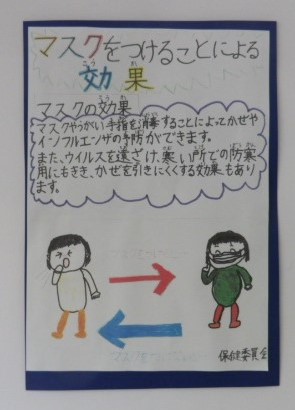 マスクをつけることによる
効果
マスクの効果
マスクやうがい手指を消毒することによってかぜや
インフルエンザの予防ができます。
また、ウイルスを遠ざけ、寒い所での防寒
用にもきき、かぜを引きにくくする効果もあり
ます。
保健委員会